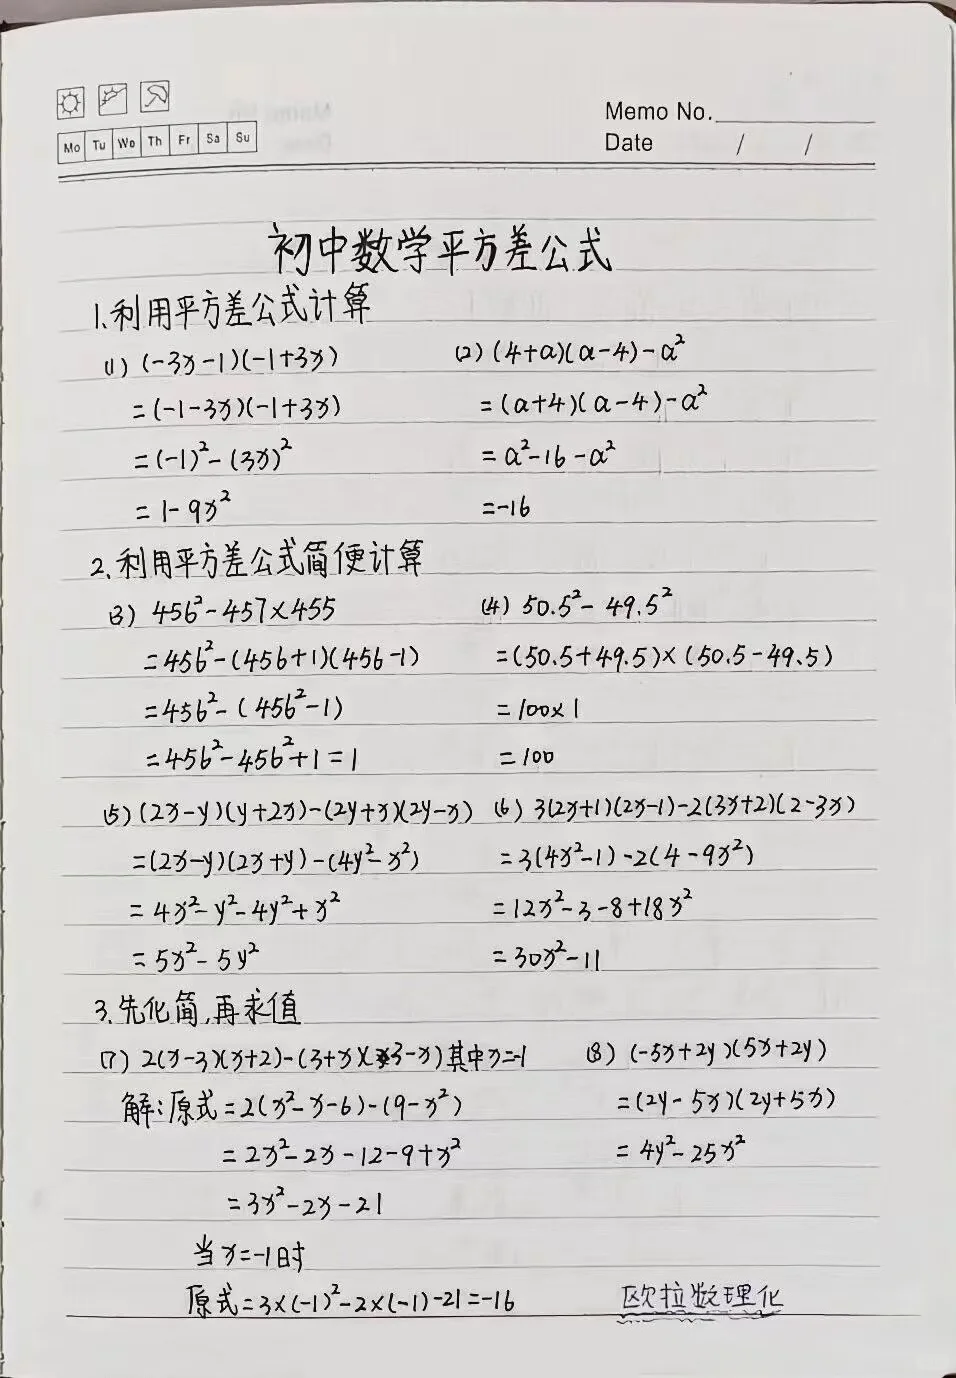 Memo No.
Mo Tu We Th Fr Sa Su
Date / /
初中数学平方差公式
1.利用平方差公式计算
(1) (-3x-1)(-1+3x)
=(-1-3x)(-1+3x)
=(-1)²-(3x)²
=1-9x²
(2) (4+a)(a-4)-a²
=(a+4)(a-4)-a²
=a²-16-a²
=-16
2.利用平方差公式简便计算
(3) 456²-457×455
=456²-(456+1)(456-1)
=456²-(456²-1)
=456²-456²+1=1
(4) 50.5²-49.5²
=(50.5+49.5)×(50.5-49.5)
=100×1
=100
(5) (2x-y)(y+2x)-(2y+x)(2y-x)
=(2x-y)(2x+y)-(4y²-x²)
=4x²-y²-4y²+x²
=5x²-5y²
(6) 3(2x+1)(2x-1)-2(3x+2)(2-3x)
=3(4x²-1)-2(4-9x²)
=12x²-3-8+18x²
=30x²-11
3.先化简,再求值
(7) 2(x-3)(x+2)-(3+x)(3-x)其中x=-1
解:原式=2(x²-x-6)-(9-x²)
=2x²-2x-12-9+x²
=3x²-2x-21
当x=-1时
原式=3×(-1)²-2×(-1)-21=-16
(8) (-5x+2y)(5x+2y)
=(2y-5x)(2y+5x)
=4y²-25x²
欧拉数理化